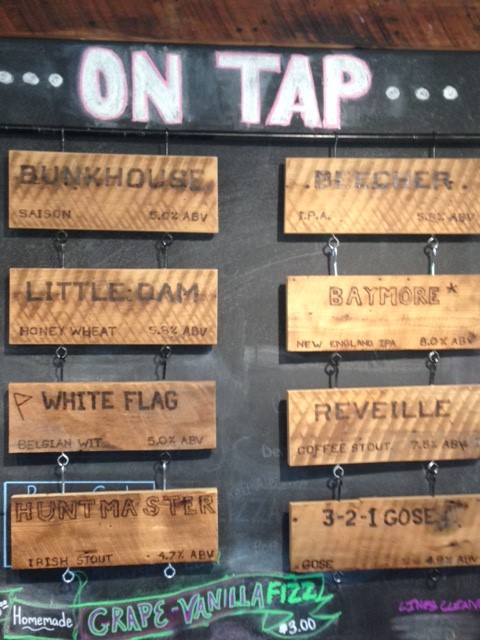 ON TAP
BUNKHOUSE
SAISON 5.0% ABV
LITTLE DAM
HONEY WHEAT 5.8% ABV
WHITE FLAG
BELGIAN WIT 5.0% ABV
HUNTMASTER
IRISH STOUT 4.7% ABV
BEECHER
I.P.A. 5.8% ABV
BAYMORE*
NEW ENGLAND IPA 8.0% ABV
REVEILLE
COFFEE STOUT 7.5% ABV
3-2-1 GOSE
GOSE 4.9% ABV
Homemade GRAPE-VANILLA FIZZ
$3.00
LINES